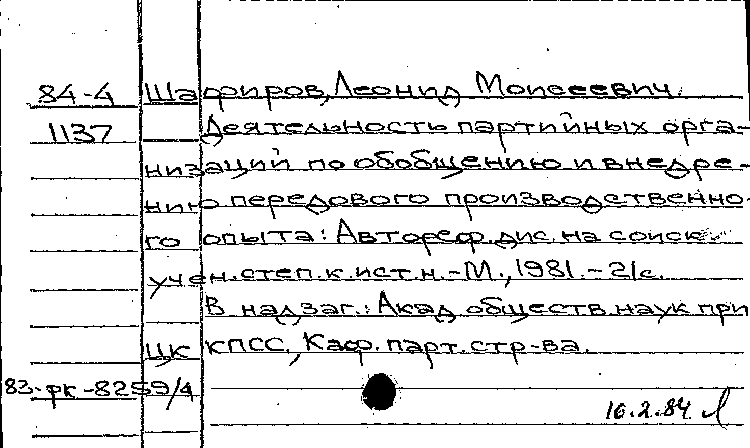 84-4 Шафиров, Леонид Моисеевич.
1137 Деятельность партийных орга-
низаций по обобщению и внедре-
нию передового производственно-
го опыта: Автореф. дис. на соиск.
учен. степ. к. ист. н. - М., 1981. - 21 с.
В надзаг.: Акад. обществ. наук при
ЦК КПСС, Каф. парт. стр-ва.
83-рк-8259/4
16.2.84